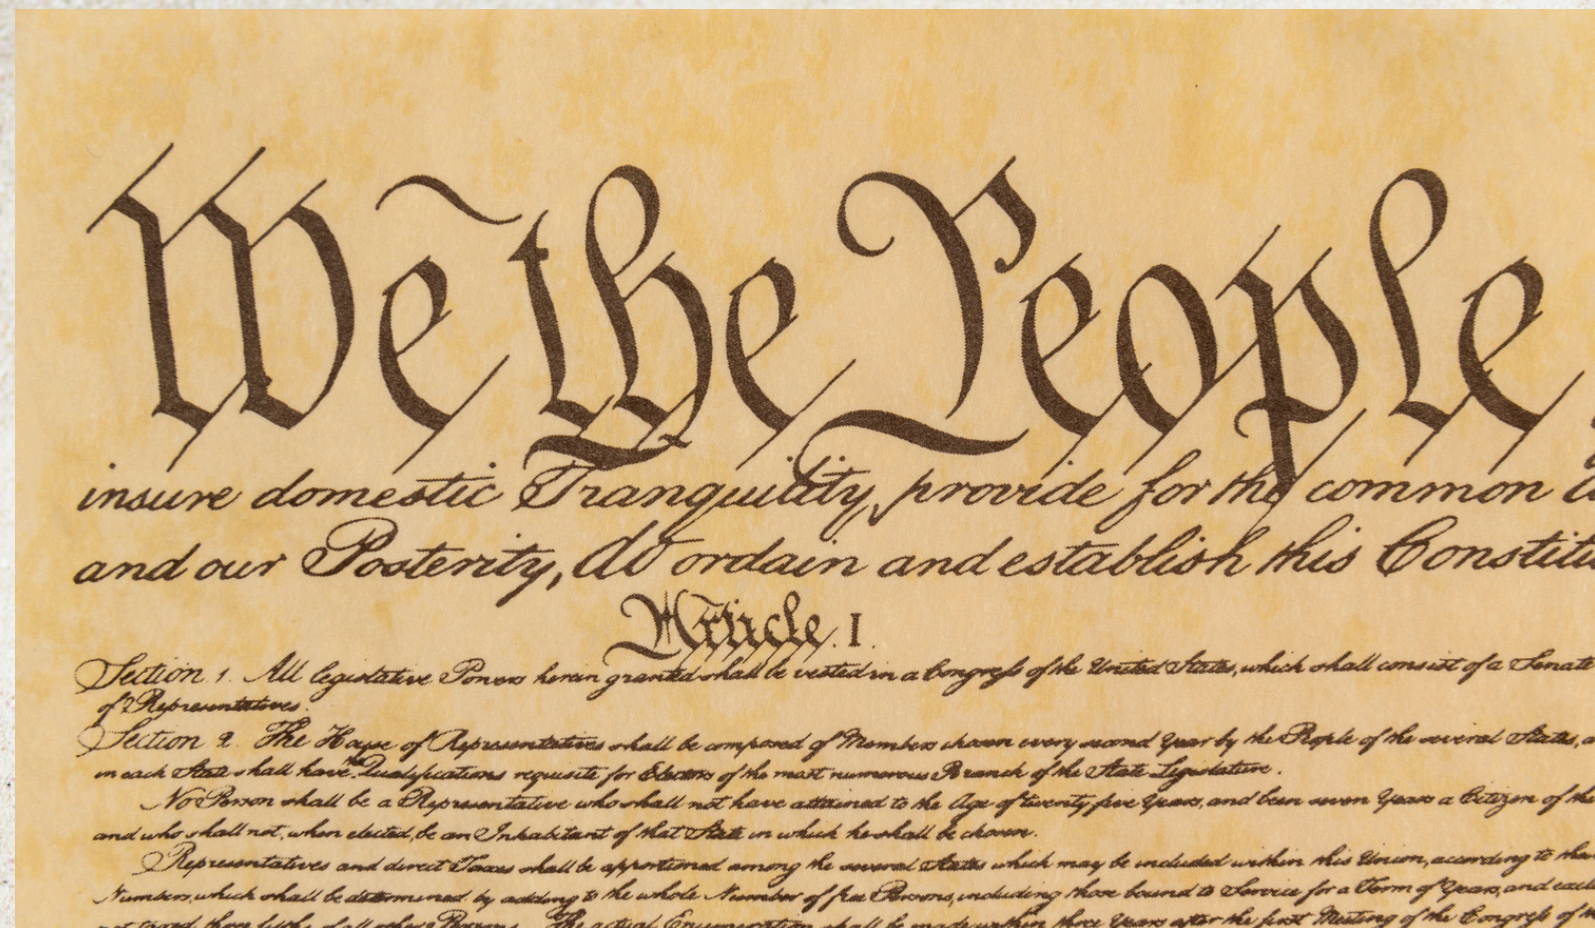 We the People
insure domestic Tranquility, provide for the common
and our Posterity, do ordain and establish this Constitu
Article. I.
Section 1. All legislative Powers herein granted shall be vested in a Congress of the United States, which shall consist of a Senate
of Representatives.
Section 2. The House of Representatives shall be composed of Members chosen every second Year by the People of the several States, a
in each State shall have the Qualifications requisite for Electors of the most numerous Branch of the State Legislature.
No Person shall be a Representative who shall not have attained to the Age of twenty five Years, and been seven Years a Citizen of the
and who shall not, when elected, be an Inhabitant of that State in which he shall be chosen.
Representatives and direct Taxes shall be apportioned among the several States which may be included within this Union, according to their
Numbers, which shall be determined by adding to the whole Number of free Persons, including those bound to Service for a Term of Years, and excl
not taxed, three fifths of all other Persons. The actual Enumeration shall be made within three Years after the first Meeting of the Congress of the